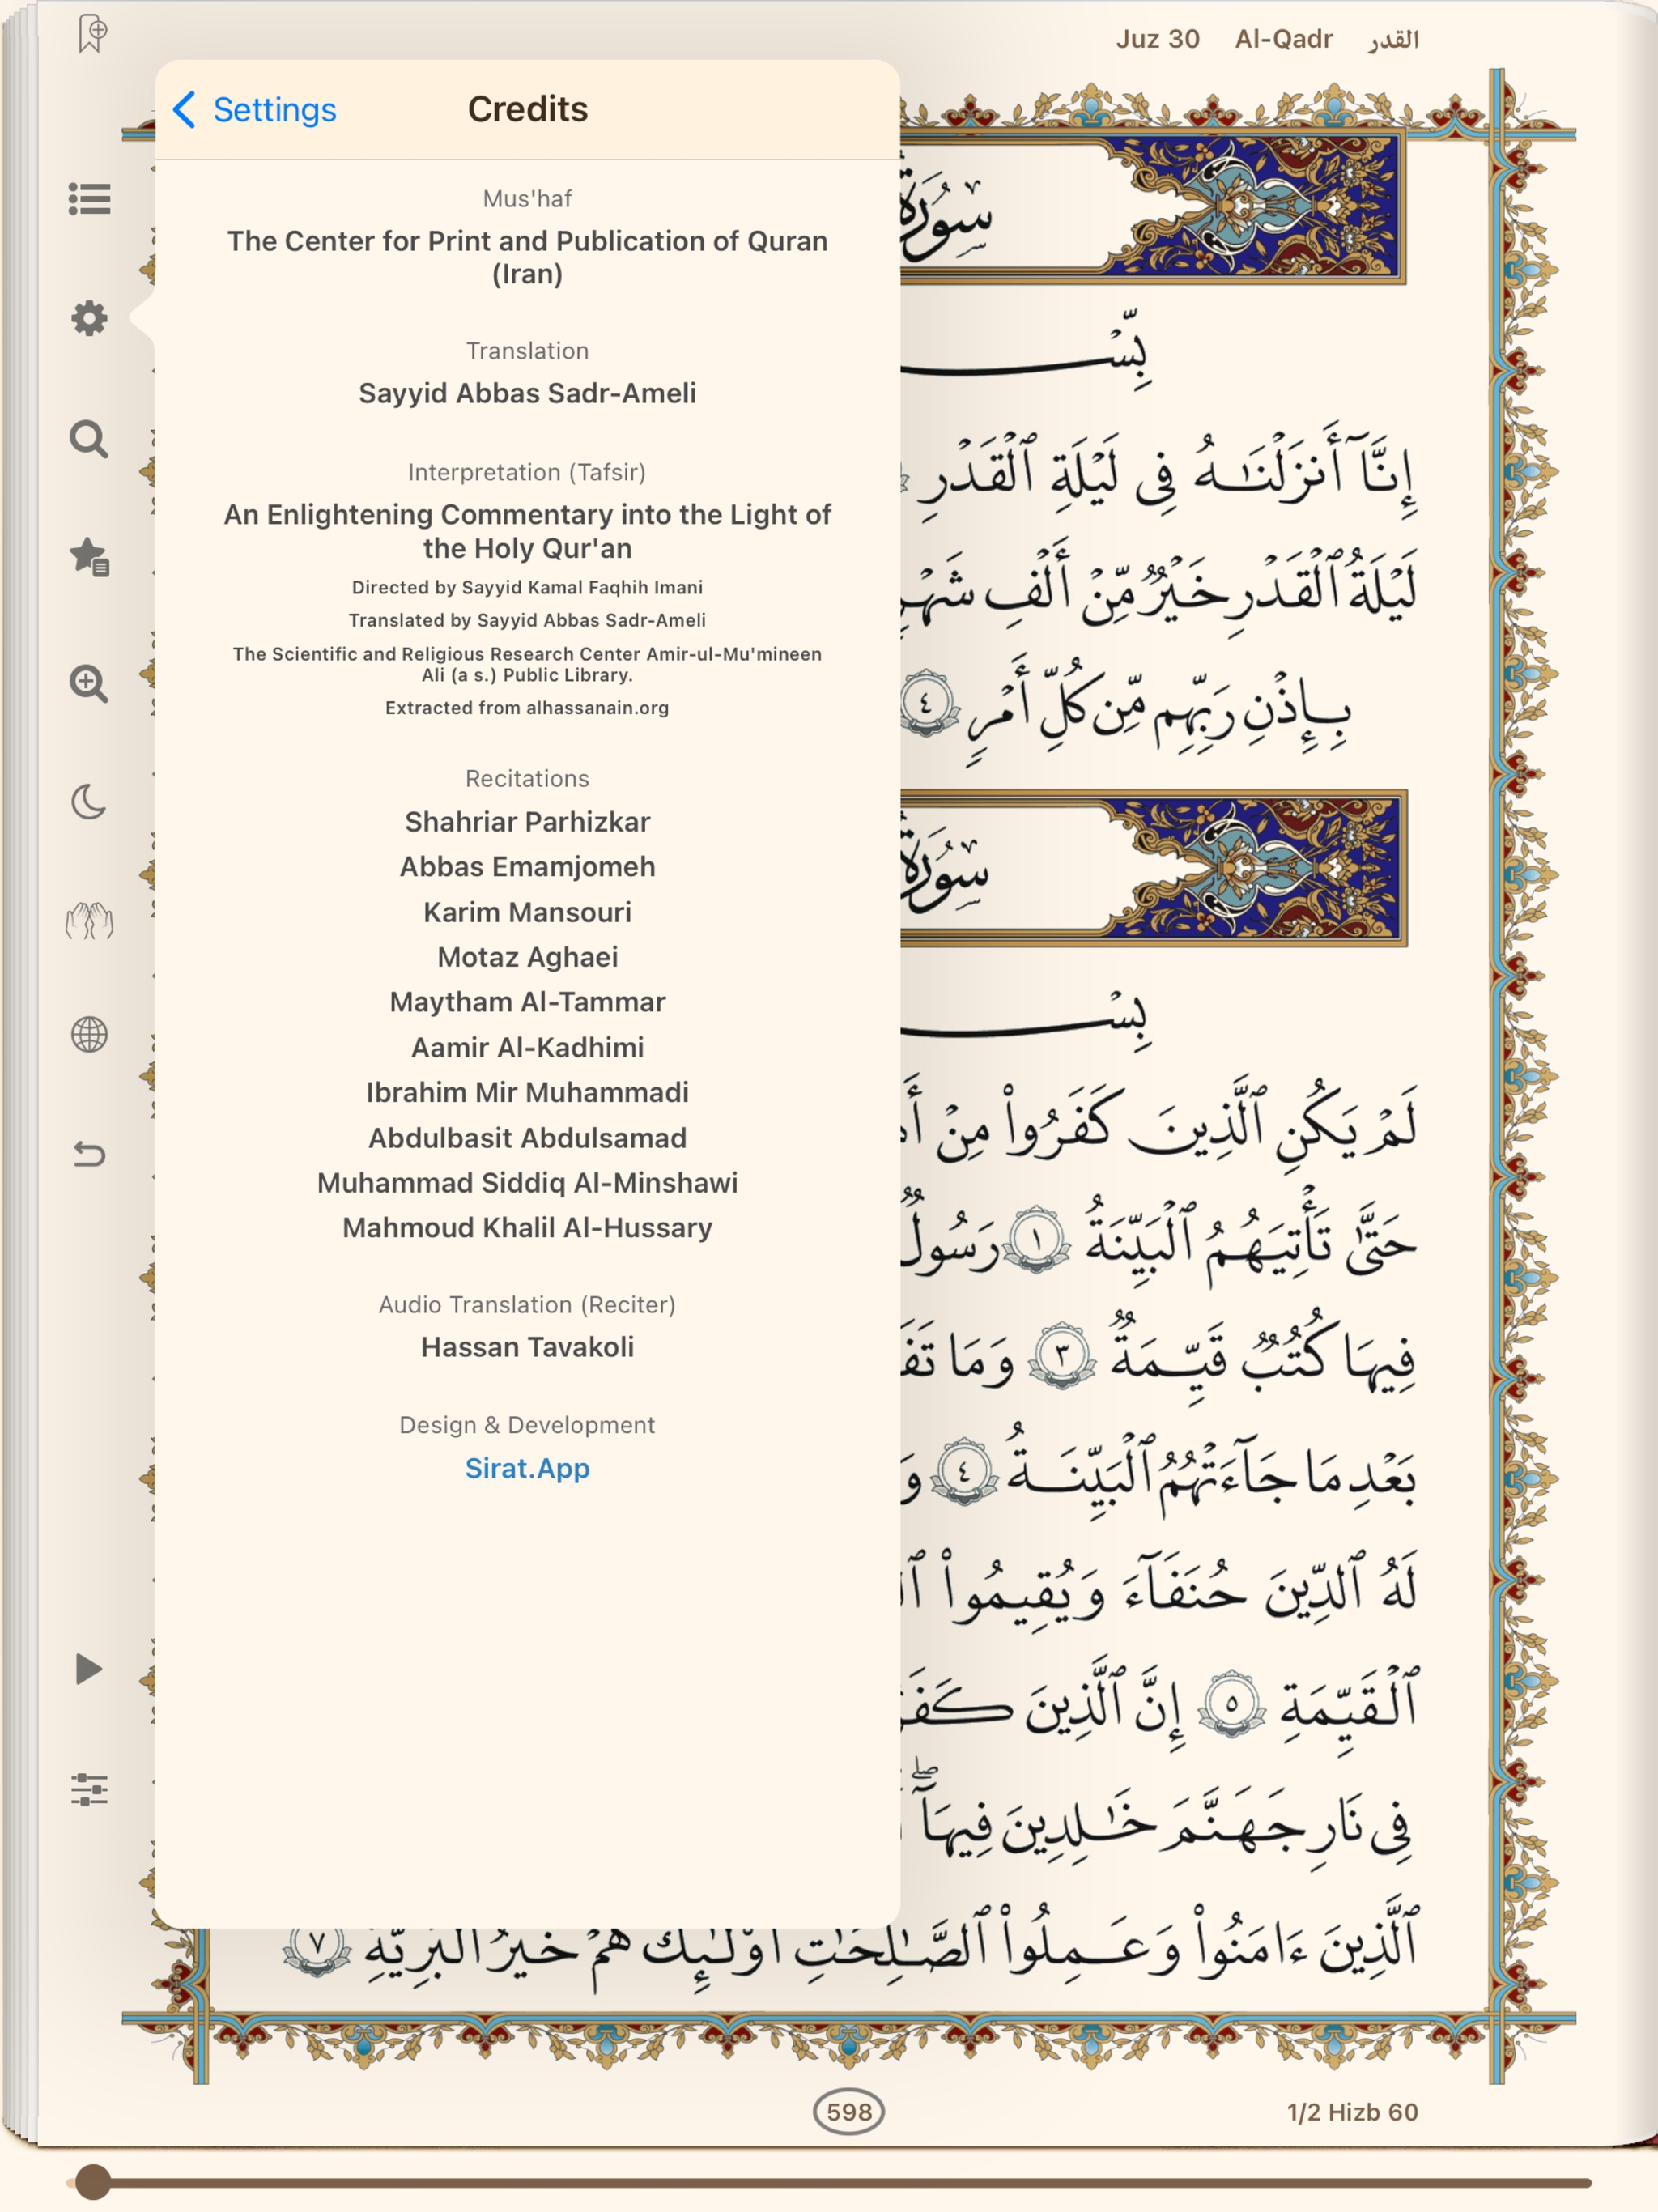 Juz 30 Al-Qadr القدر
Settings
Credits
Mus'haf
The Center for Print and Publication of Quran
(Iran)
Translation
Sayyid Abbas Sadr-Ameli
Interpretation (Tafsir)
An Enlightening Commentary into the Light of
the Holy Qur'an
Directed by Sayyid Kamal Faqhih Imani
Translated by Sayyid Abbas Sadr-Ameli
The Scientific and Religious Research Center Amir-ul-Mu'mineen
Ali (a s.) Public Library.
Extracted from alhassanain.org
Recitations
Shahriar Parhizkar
Abbas Emamjomeh
Karim Mansouri
Motaz Aghaei
Maytham Al-Tammar
Aamir Al-Kadhimi
Ibrahim Mir Muhammadi
Abdulbasit Abdulsamad
Muhammad Siddiq Al-Minshawi
Mahmoud Khalil Al-Hussary
Audio Translation (Reciter)
Hassan Tavakoli
Design & Development
Sirat.App
سورة
إِنَّآ أَنزَلْنَـٰهُ فِى لَيْلَةِ ٱلْقَدْرِ
لَيْلَةُ ٱلْقَدْرِ خَيْرٌ مِّنْ أَلْفِ شَهْرٍ
بِإِذْنِ رَبِّهِم مِّن كُلِّ أَمْرٍ ٤
سورة
لَمْ يَكُنِ ٱلَّذِينَ كَفَرُوا۟ مِنْ
حَتَّىٰ تَأْتِيَهُمُ ٱلْبَيِّنَةُ ١ رَسُولٌ
فِيهَا كُتُبٌ قَيِّمَةٌ ٣ وَمَا
بَعْدِ مَا جَآءَتْهُمُ ٱلْبَيِّنَةُ ٤
لَهُ ٱلدِّينَ حُنَفَآءَ وَيُقِيمُوا۟
ٱلْقَيِّمَةِ ٥ إِنَّ ٱلَّذِينَ
فِى نَارِ جَهَنَّمَ خَـٰلِدِينَ فِيهَآ ۖ
ٱلَّذِينَ ءَامَنُوا۟ وَعَمِلُوا۟ ٱلصَّـٰلِحَـٰتِ أُو۟لَـٰٓئِكَ هُمْ خَيْرُ ٱلْبَرِيَّةِ ٧
598
1/2 Hizb 60